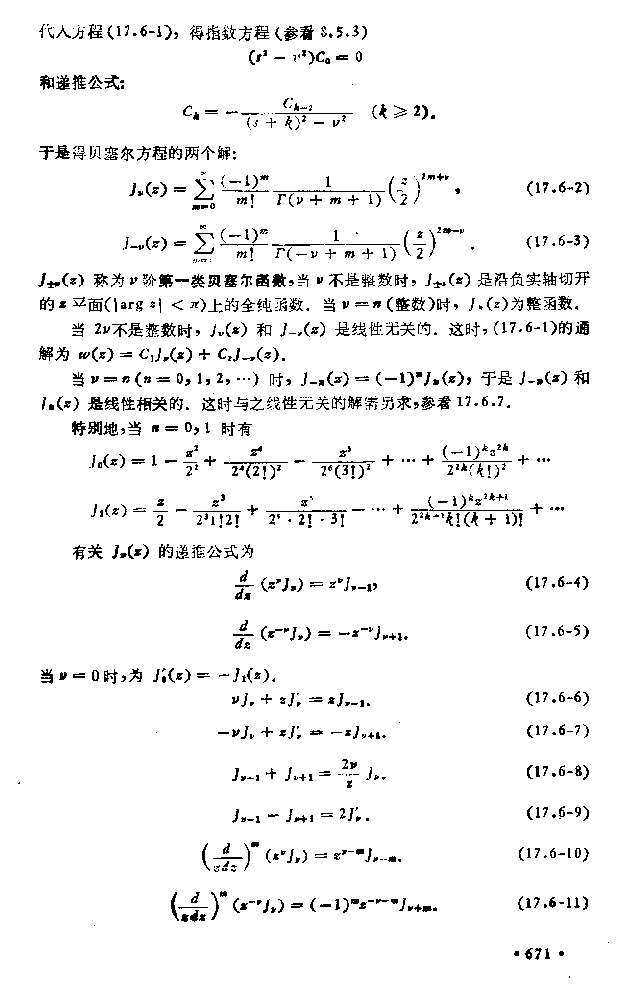 代入方程(17.6-1)，得指数方程(参看 8.5.3)
(s² − ν²)C₀ = 0
和递推公式:
Cₖ = − Cₖ₋₂ / ((s + k)² − ν²)  (k ⩾ 2).
于是得贝塞尔方程的两个解:
J_ν(z) = ∑_{m=0}^{∞} (−1)^m / m! · 1 / Γ(ν + m + 1) (z/2)^{2m+ν}, (17.6-2)
J_{−ν}(z) = ∑_{m=0}^{∞} (−1)^m / m! · 1 / Γ(−ν + m + 1) (z/2)^{2m−ν}. (17.6-3)
J_{±ν}(z) 称为 ν 阶第一类贝塞尔函数,当 ν 不是整数时，J_{±ν}(z) 是沿负实轴切开
的 z 平面(|arg z| < π)上的全纯函数. 当 ν = n (整数)时，J_ν(z)为整函数.
当 2ν不是整数时，J_ν(z) 和 J_{−ν}(z) 是线性无关的. 这时，(17.6-1)的通
解为 w(z) = C₁J_ν(z) + C₂J_{−ν}(z).
当 ν = n (n = 0, 1, 2, ⋯) 时，J_{−n}(z) = (−1)ⁿJ_n(z)，于是 J_{−n}(z) 和
J_n(z) 是线性相关的. 这时与之线性无关的解需另求,参看 17.6.7.
特别地,当 n = 0, 1 时有
J₀(z) = 1 − z²/2² + z⁴/(2⁴(2!)²) − z⁶/(2⁶(3!)²) + ⋯ + (−1)^k z^{2k}/(2^{2k}(k!)²) + ⋯
J₁(z) = z/2 − z³/(2³1!2!) + z⁵/(2⁵ · 2! · 3!) − ⋯ + (−1)^k z^{2k+1}/(2^{2k+1}k!(k + 1)!) + ⋯
有关 J_ν(z) 的递推公式为
d/dz (z^ν J_ν) = z^ν J_{ν−1}, (17.6-4)
d/dz (z^{−ν}J_ν) = −z^{−ν}J_{ν+1}. (17.6-5)
当 ν = 0 时,为 J₀′(z) = −J₁(z).
νJ_ν + zJ′_ν = zJ_{ν−1}. (17.6-6)
−νJ_ν + zJ′_ν = −zJ_{ν+1}. (17.6-7)
J_{ν−1} + J_{ν+1} = 2ν/z J_ν. (17.6-8)
J_{ν−1} − J_{ν+1} = 2J′_ν. (17.6-9)
(d/zdz)^m (z^ν J_ν) = z^{ν−m}J_{ν−m}. (17.6-10)
(d/zdz)^m (z^{−ν}J_ν) = (−1)^m z^{−ν−m}J_{ν+m}. (17.6-11)
• 671 •